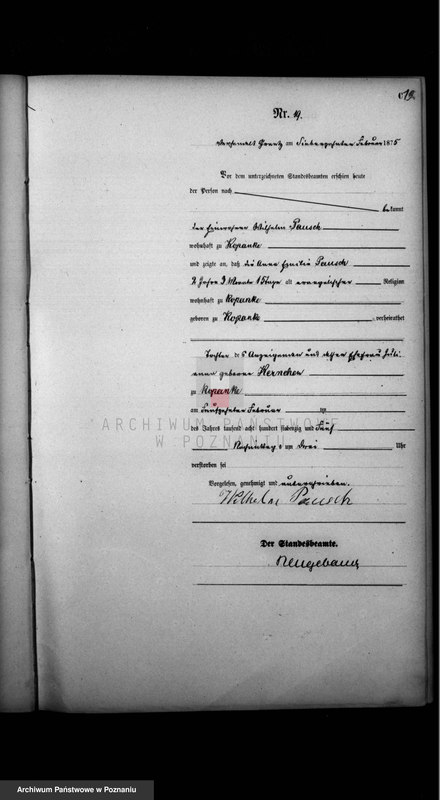 Nr. 19.
Grætz am Siebenzehnten Februar 1875
Vor dem unterzeichneten Standesbeamten erschien heute
der Person nach
bekannt
der Einwohner Wilhelm Pausch
wohnhaft zu Kopanke
und zeigte an, daß die Anna Emilie Pausch
2 Jahre 3 Monate 1 Tage alt evangelischer Religion
wohnhaft zu Kopanke
geboren zu Kopanke verheirathet
Tochter des Anzeigenden und dessen Ehefrau Juli
anna geborene Hernchen
zu Kopanke
am Fünfzehnten Februar
des Jahres tausend acht hundert siebenzig und Fünf
Nachmittags um Drei Uhr
verstorben sei
Vorgelesen, genehmigt und unterschrieben.
Wilhelm Pausch
Der Standesbeamte.
Neugebaur
ARCHIWUM PAŃSTWOWE
W POZNANIU
Archiwum Państwowe w Poznaniu